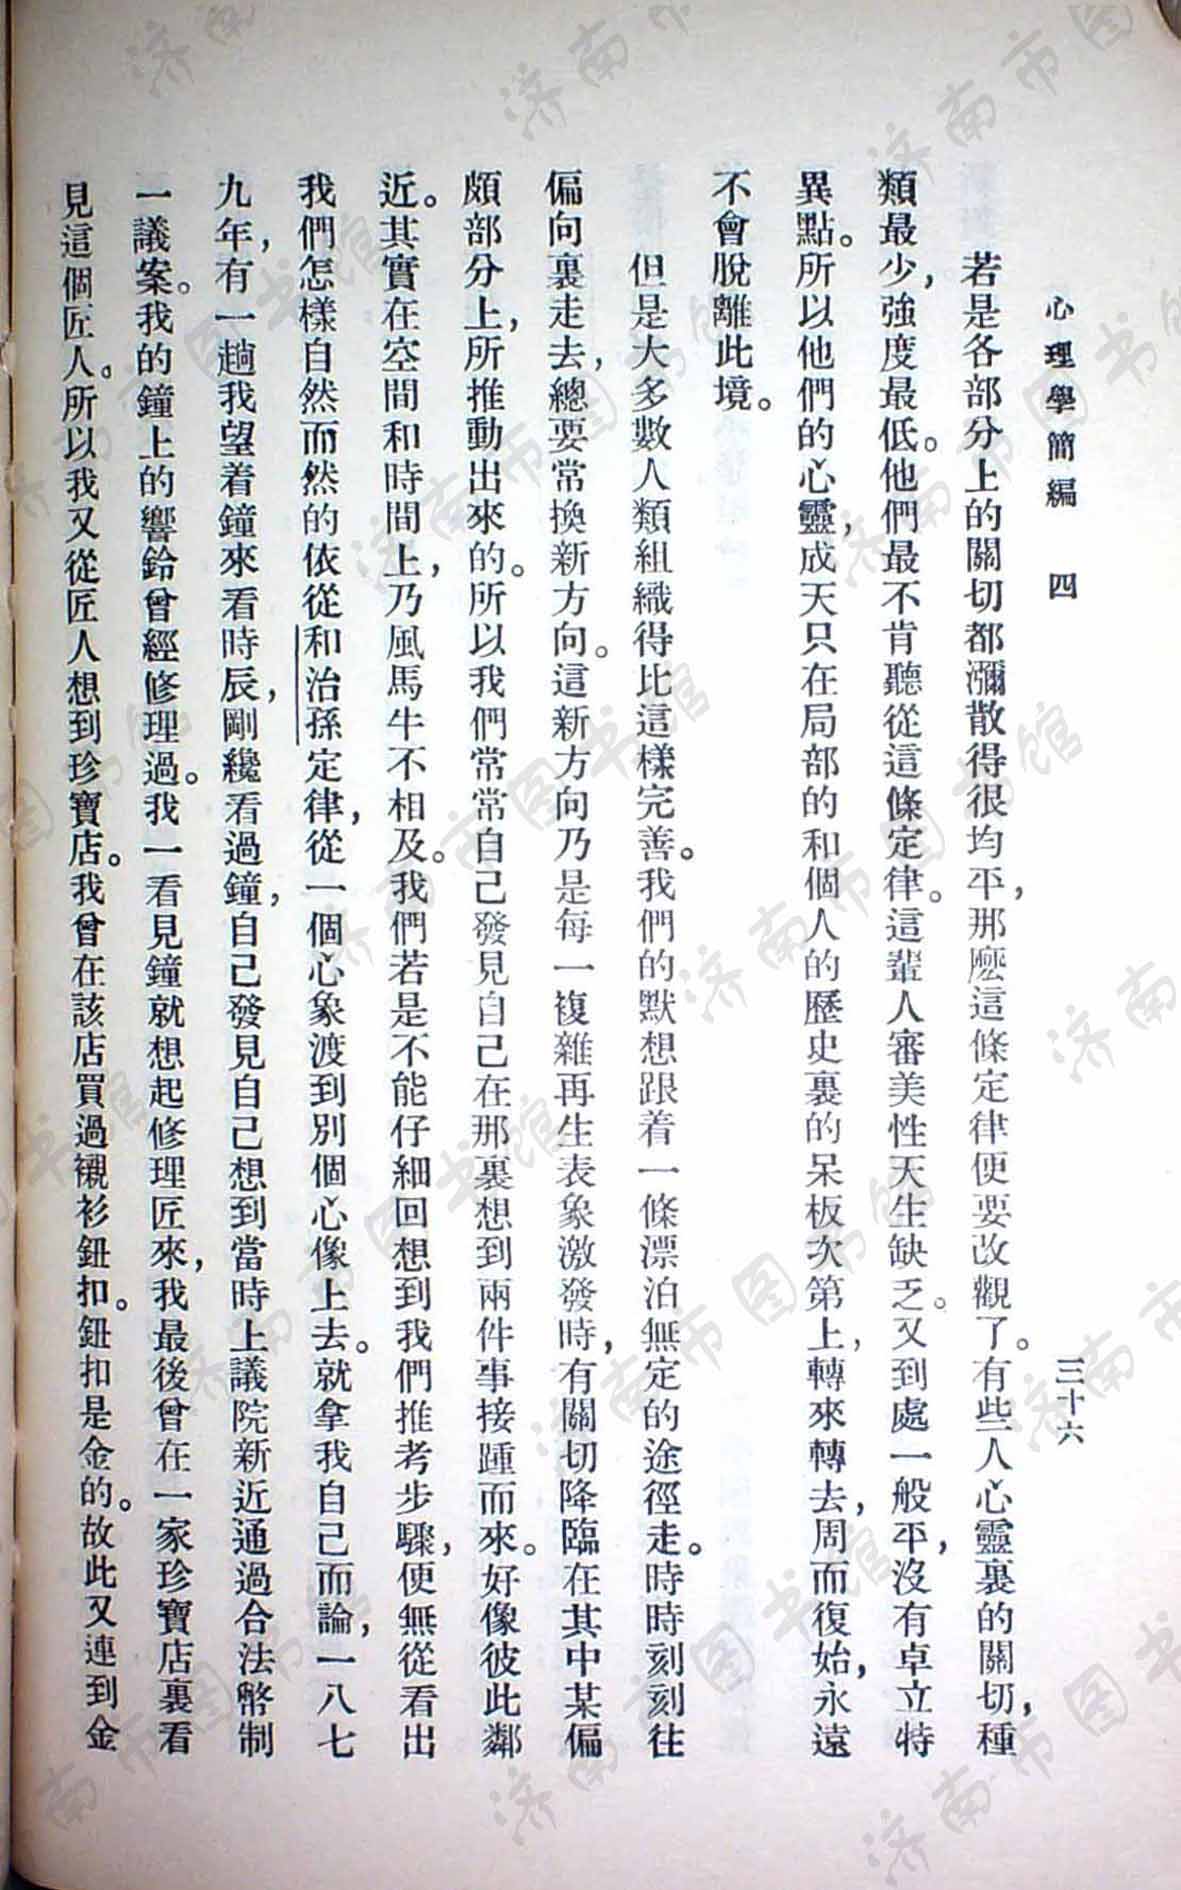 心理學簡編　四　三十六
若是各部分上的關切都瀰散得很均平，那麽這條定律便要改觀了。有些人心靈裏的關切，種
類最少，強度最低。他們最不肯聽從這條定律。這輩人審美性天生缺乏。又到處一般平，沒有卓立特
異點。所以他們的心靈，成天只在局部的和個人的歷史裏的呆板次第上，轉來轉去，周而復始，永遠
不會脫離此境。
但是大多數人類組織得比這樣完善。我們的默想跟着一條漂泊無定的途徑走。時時刻刻往
偏向裏走去，總要常換新方向。這新方向乃是每一複雜再生表象激發時，有關切降臨在其中某偏
頗部分上，所推動出來的。所以我們常常自己發見自己在那裏想到兩件事接踵而來。好像彼此鄰
近。其實在空間和時間上，乃風馬牛不相及。我們若是不能仔細回想到我們推考步驟，便無從看出
我們怎樣自然而然的依從和治孫定律，從一個心象渡到別個心像上去。就拿我自己而論，一八七
九年，有一趟我望着鐘來看時辰，剛纔看過鐘，自己發見自己想到當時上議院新近通過合法幣制
一議案。我的鐘上的響鈴曾經修理過。我一看見鐘就想起修理匠來，我最後曾在一家珍寶店裏看
見這個匠人。所以我又從匠人想到珍寶店。我曾在該店買過襯衫鈕扣。鈕扣是金的。故此又連到金
济南市图书馆